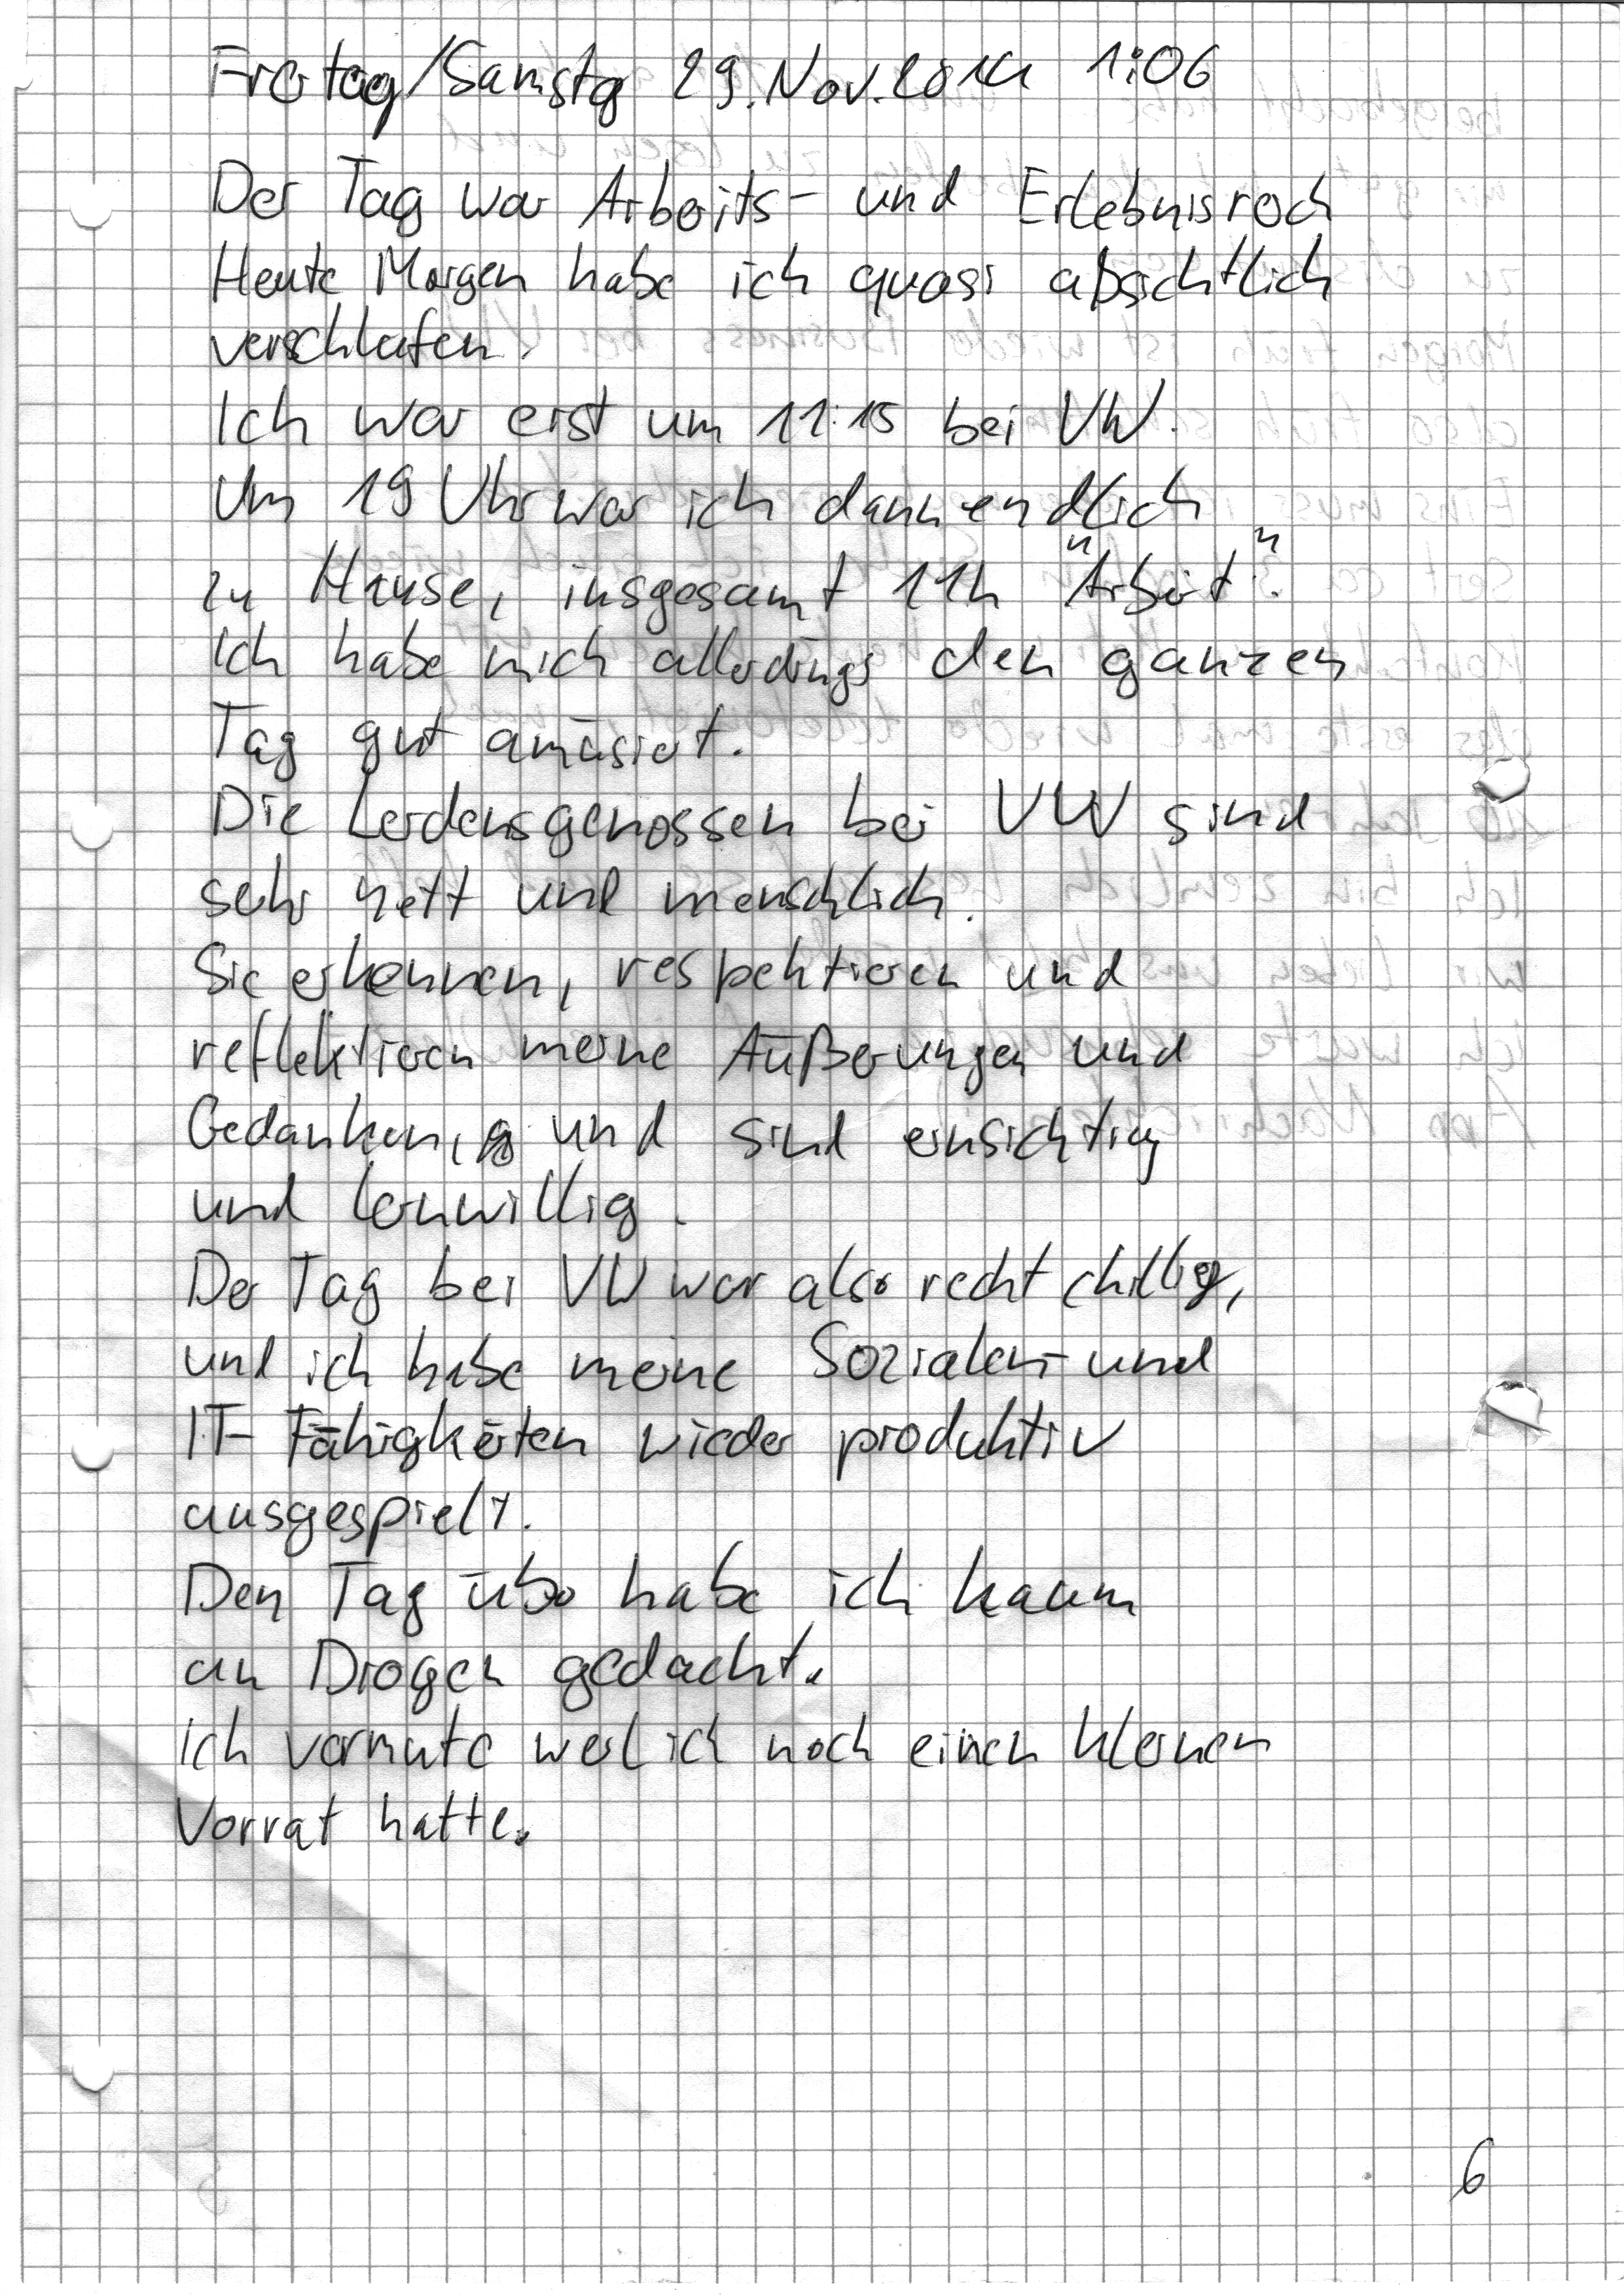 Freitag/Samstg 29. Nov. 2014 1:06
Der Tag war Arbeits- und Erlebnisreich
Heute Morgen habe ich quasi absichtlich
verschlafen.
Ich war erst um 11:15 bei VW.
Um 19 Uhr war ich dann endlich
zu Hause, insgesamt 11h "Arbeit".
Ich habe mich allerdings den ganzen
Tag gut amüsiert.
Die Leidensgenossen bei VW sind
sehr nett und menschlich.
Sie erkennen, respektieren und
reflektieren meine Äußerungen und
Gedanken, und sind einsichtig
und lernwillig.
Der Tag bei VW war also recht chillig,
und ich habe meine Sozialen- und
IT- Fähigkeiten wieder produktiv
ausgespielt.
Den Tag über habe ich kaum
an Drogen gedacht.
Ich vermute weil ich noch einen kleinen
Vorrat hatte.
6